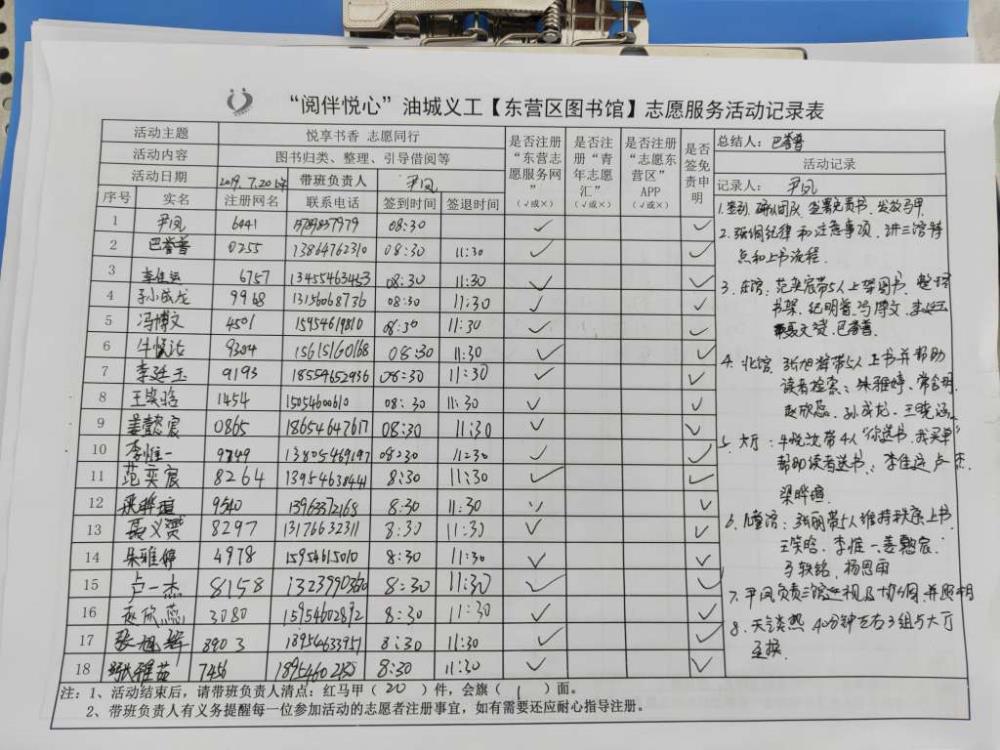 “阅伴悦心”油城义工【东营区图书馆】志愿服务活动记录表
活动主题 悦享书香 志愿同行
活动内容 图书归类、整理、引导借阅等
活动日期 2019.7.20 带班负责人 尹凤
序号 实名 注册网名 联系电话 签到时间 签退时间
是否注册“东营志愿服务网” (√或×)
是否注册“青年志愿汇” (√或×)
是否注册“志愿东营区”APP (√或×)
是否签免责申明
1 尹凤 6441 08:30 √ √
2 巴誉普 0255 13864762310 08:30 11:30 √ √
3 李佳运 6757 13455463453 08:30 11:30 √ √
4 孙小成龙 9968 13156068776 08:30 11:30 √ √
5 冯博文 4501 15954619810 08:30 11:30 √ √
6 牛悦沄 9304 15615160168 08:30 11:30 √ √
7 李延玉 9193 18554652936 08:30 11:30 √ √
8 王笑晗 1454 15054600610 08:30 11:30 √ √
9 姜懿宸 0865 18654647617 08:30 11:30 √ √
10 李恒一 9749 13805469197 08:30 11:30 √ √
11 范奕宸 8264 13954638441 8:30 11:30 √ √
12 梁晔瑄 9540 13963372168 8:30 11:30 √ √
13 聂义赟 8297 13176632311 8:30 11:30 √ √
14 朱雅婷 4978 15954615010 8:30 11:30 √ √
15 卢一杰 8158 8:30 11:30 √ √
16 赵欣蕊 3080 15954602892 8:30 11:30 √ √
17 张旭辉 8903 18954633957 8:30 11:30 √ √
18 张雅茹 7456 18954602150 8:30 11:30 √ √
总结人：巴誉普
活动记录
记录人： 尹凤
1.签到，确认团队，签署免责书，发放马甲
2.强调纪律和注意事项，讲三馆特
点和上书流程.
3.庄馆：范奕宸带5人上架图书，整理
书架，纪明睿.冯博文.李延玉
聂义赟.巴誉普.
4.北馆.张旭辉带5人上书并帮助
读者检索：朱雅婷.
赵欣蕊.孙成龙.王晓涵
5.大厅：牛悦沄带4人“你选书,我买单”
帮助读者选书：李佳运 卢一杰.
梁晔瑄.
6.儿童馆：张丽带5人维持秩序上书.
王笑晗.李恒一.姜懿宸.
杨思雨
7.尹凤负责三馆巡视及协调,并照相
8.天气炎热 40分钟左右3组与大厅
互换.
注：1、活动结束后，请带班负责人清点：红马甲（20）件，会旗（1）面。
2、带班负责人有义务提醒每一位参加活动的志愿者注册事宜，如有需要还应耐心指导注册。